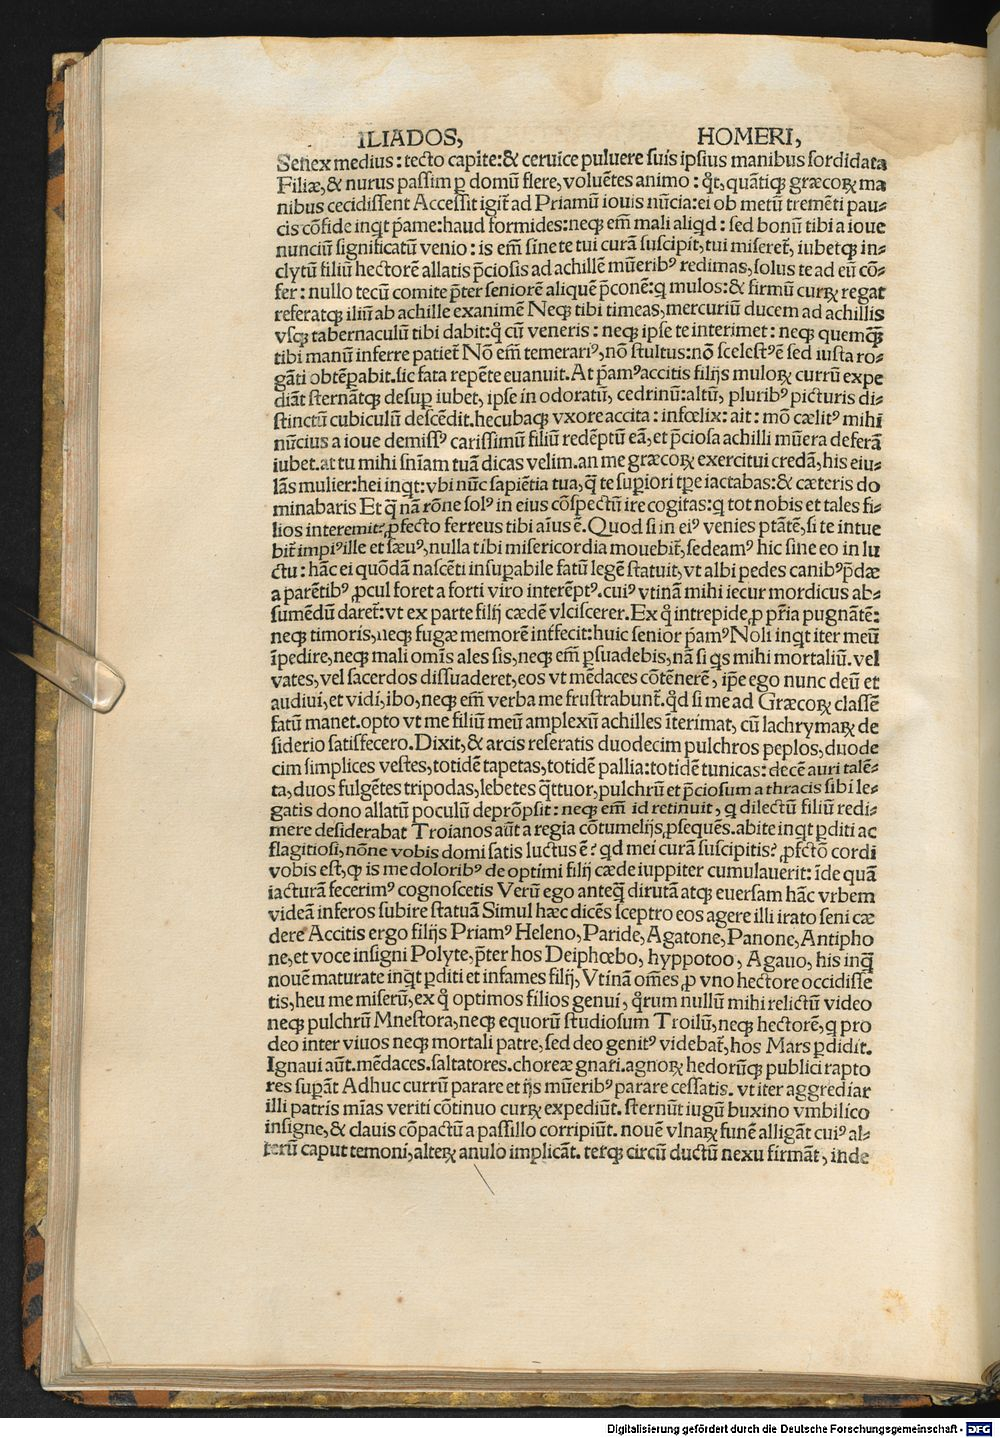 ILIADOS, HOMERI,
Senex medius: tecto capite:& ceruice puluere suis ipsius manibus sordidata
Filiæ,& nurus passim ꝑ domū flere, voluētes animo: qͥt, quātiqꝫ græcoꝝ ma
nibus cecidissent Accessit igit̄ ad Priamū iouis nūcia: ei ob metū tremēti pau⸗
cis cōfide inqt p̄ame: haud formides: neqꝫ em̄ mali aliqd: sed bonū tibi a ioue
nunciū significatū venio: is em̄ sine te tui curā suscipit, tui miseret̄, iubetqꝫ in⸗
clytū filiū hectorē allatis p̄ciosis ad achillē mūeribꝰ redimas, solus te ad eū cō⸗
fer: nullo tecū comite p̄ter seniorē aliquē p̄conē: q mulos:& firmū curꝝ regat
referatqꝫ iliū ab achille exanimē Neqꝫ tibi timeas, mercuriū ducem ad achillis
vsqꝫ tabernaculū tibi dabit: qͥ cū veneris: neqꝫ ipse te interimet: neqꝫ quemqꝫ̄
tibi manū inferre patiet̄ Nō em̄ temerariꝰ, nō stultus: nō scelestꝰ ē sed iusta ro⸗
gāti obtēꝑabit. sic fata repēte euanuit. At p̄amꝰ accitis filijs muloꝝ currū expe
diāt sternātqꝫ desuꝑ iubet, ipse in odoratū, cedrinū: altū, pluribꝰ picturis di⸗
stinctū cubiculū descēdit. hecubaqꝫ vxore accita: infœlix: ait: mō cælitꝰ mihi
nūcius a ioue demissꝰ carissimū filiū redēptū eā, et p̄ciosa achilli mūera deferā
iubet. at tu mihi sn̄iam tuā dicas velim. an me græcoꝝ exercitui credā, his eiu⸗
lās mulier: hei inqt: vbi nūc sapiētia tua, q̄ te suꝑiori tꝑe iactabas:& cæteris do
minabaris Et q̄ nā rōne solꝰ in eius cōspectū ire cogitas: q tot nobis et tales fi⸗
lios interemit: ꝓfecto ferreus tibi aīus ē. Quod si in eiꝰ venies ptātē, si te intue
bit̄ impiꝰ ille et sæuꝰ, nulla tibi misericordia mouebit̄, sedeamꝰ hic sine eo in lu
ctu: hāc ei quōdā nascēti insuꝑabile fatū legē statuit, vt albi pedes canibꝰ p̄dæ
a parētibꝰ ꝓcul foret a forti viro interēptꝰ. cuiꝰ vtinā mihi iecur mordicus ab⸗
sumēdū daret̄: vt ex parte filij cædē vlciscerer. Ex qͦ intrepide, ꝓ pr̄ia pugnātē:
neqꝫ timoris, neqꝫ fugæ memorē inťfecit: huic senior p̄amꝰ Noli inqt iter meū
īpedire, neqꝫ mali omīs ales sis, neqꝫ em̄ ꝑsuadebis, nā si qs mihi mortaliū. vel
vates, vel sacerdos dissuaderet, eos vt mēdaces cōtēnerē, ip̄e ego nunc deū et
audiui, et vidi, ibo, neqꝫ em̄ verba me frustrabunt̄. qͥd si me ad Græcoꝝ classē
fatū manet. opto vt me filiū meū amplexū achilles īterimat, cū lachrymaꝝ de
siderio satisfecero. Dixit,& arcis reseratis duodecim pulchros peplos, duode
cim simplices vestes, totidē tapetas, totidē pallia: totidē tunicas: decē auri talē⸗
ta, duos fulgētes tripodas, lebetes q̄ttuor, pulchrū et p̄ciosum a thracis sibi le⸗
gatis dono allatū poculū deprōpsit: neqꝫ em̄ id retinuit, q dilectū filiū redi⸗
mere desiderabat Troianos aūt a regia cōtumelijs, ꝓsequēs. abite inqt ꝑditi ac
flagitiosi, nōne vobis domi satis luctus ē? qd mei curā suscipitis? ꝓfctō cordi
vobis est, qꝙ is me doloribꝰ de optimi filij cæde iuppiter cumulauerit: īde quā
iacturā fecerimꝰ cognoscetis Verū ego anteq̄ dirutā atqꝫ euersam hāc vrbem
videā inferos subire statuā Simul hæc dicēs sceptro eos agere illi irato seni cæ
dere Accitis ergo filijs Priamꝰ Heleno, Paride, Agatone, Panone, Antipho
ne, et voce insigni Polyte, p̄ter hos Deiphœbo, hyppotoo, Agauo, his inq̄
nouē maturate inqt ꝑditi et infames filij, Vtinā om̄es ꝓ vno hectore occidisse
tis, heu me miserū, ex qͦ optimos filios genui, qͦrum nullū mihi relictū video
neqꝫ pulchrū Mnestora, neqꝫ equorū studiosum Troilū, neqꝫ hectorē, q pro
deo inter viuos neqꝫ mortali patre, sed deo genitꝰ videbat̄, hos Mars ꝑdidit.
Ignaui aūt. mēdaces. saltatores. choreæ gnari. agnoꝝ hedorūqꝫ publici rapto
res suꝑāt Adhuc currū parare et ijs mūeribꝰ parare cessatis. vt iter aggrediar
illi patris mīas veriti cōtinuo curꝝ expediūt. sternūt iugū buxino vmbilico
insigne,& clauis cōpactū a passillo corripiūt. nouē vlnaꝝ funē alligāt cuiꝰ al⸗
terū caput temoni, alteꝝ anulo implicāt. terqꝫ circū ductū nexu firmāt, inde
Digitalisierung gefördert durch die Deutsche Forschungsgemeinschaft - DFG